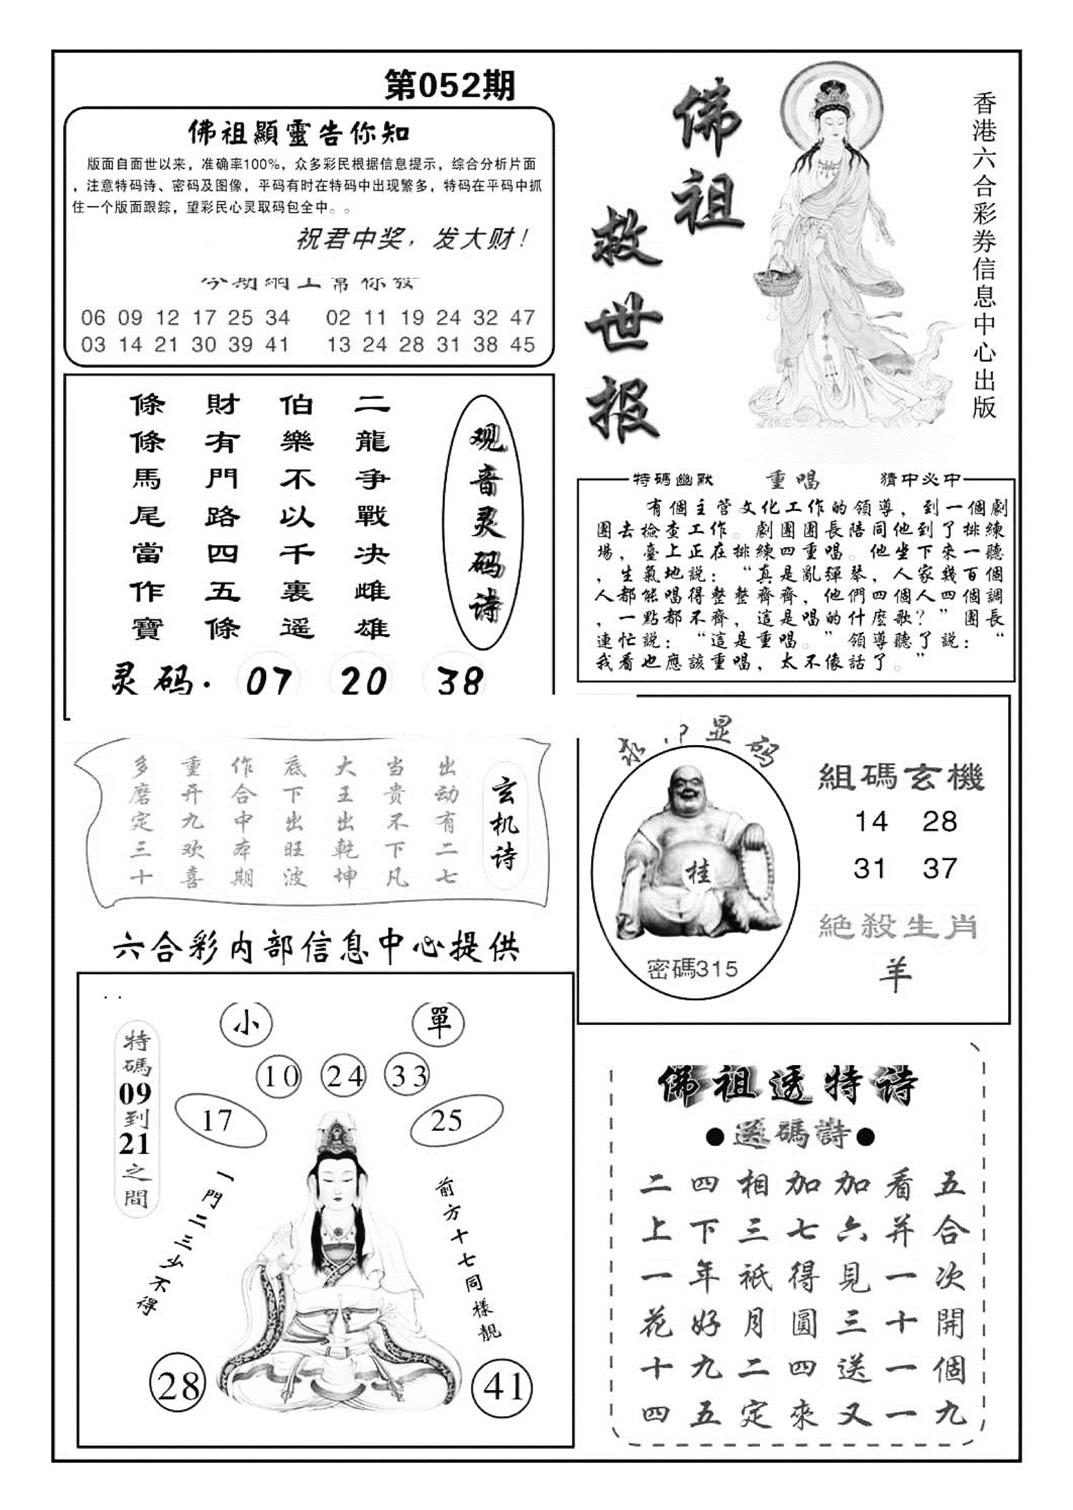 第052期
佛祖顯靈告你知
版面自面世以来，准确率100%，众多彩民根据信息提示，综合分析片面
，注意特码诗、密码及图像，平码有时在特码中出现繁多，特码在平码中抓
住一个版面跟踪，望彩民心灵取码包全中。。
祝君中奖，发大财！
今期網上幫你發
06 09 12 17 25 34 02 11 19 24 32 47
03 14 21 30 39 41 13 24 28 31 38 45
佛祖
救世报
香港六合彩券信息中心出版
二龍争戰决雌雄
伯樂不以千裏遥
財有門路四五條
條條馬尾當作寶
观音灵码诗
灵码. 07 20 38
特碼幽默 重唱 猜中必中
有個主管文化工作的領導，到一個劇
團去檢查工作。劇團團長陪同他到了排練
場，臺上正在排練四重唱。他坐下來一聽
，生氣地説：“真是亂彈琴，人家幾百個
人都能唱得整整齊齊，他們四個人四個調
，一點都不齊，這是唱的什麽歌？”團長
連忙説：“這是重唱。”領導聽了説：“
我看也應該重唱，太不像話了。”
玄机诗
出动有二七
当贵不下凡
大王出乾坤
底下出旺波
作合中本期
重开九欢喜
多磨定三十
显码
桂
密碼315
組碼玄機
14 28
31 37
絶殺生肖
羊
六合彩内部信息中心提供
特碼09到21之間
小 單
10 24 33
17 25
一門二三少不得
前方十七同樣靚
28 41
佛祖透特诗
●送碼詩●
五合次開個九
看并一十一一
加六見三送又
加七得圓四來
相三祇月二定
四下年好九五
二上一花十四